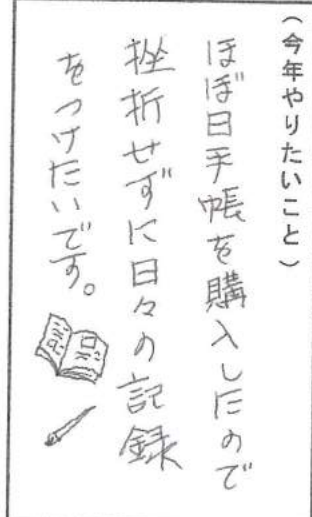 （今年やりたいこと）
ほぼ日手帳を購入したので
挫折せずに日々の記録
をつけたいです。